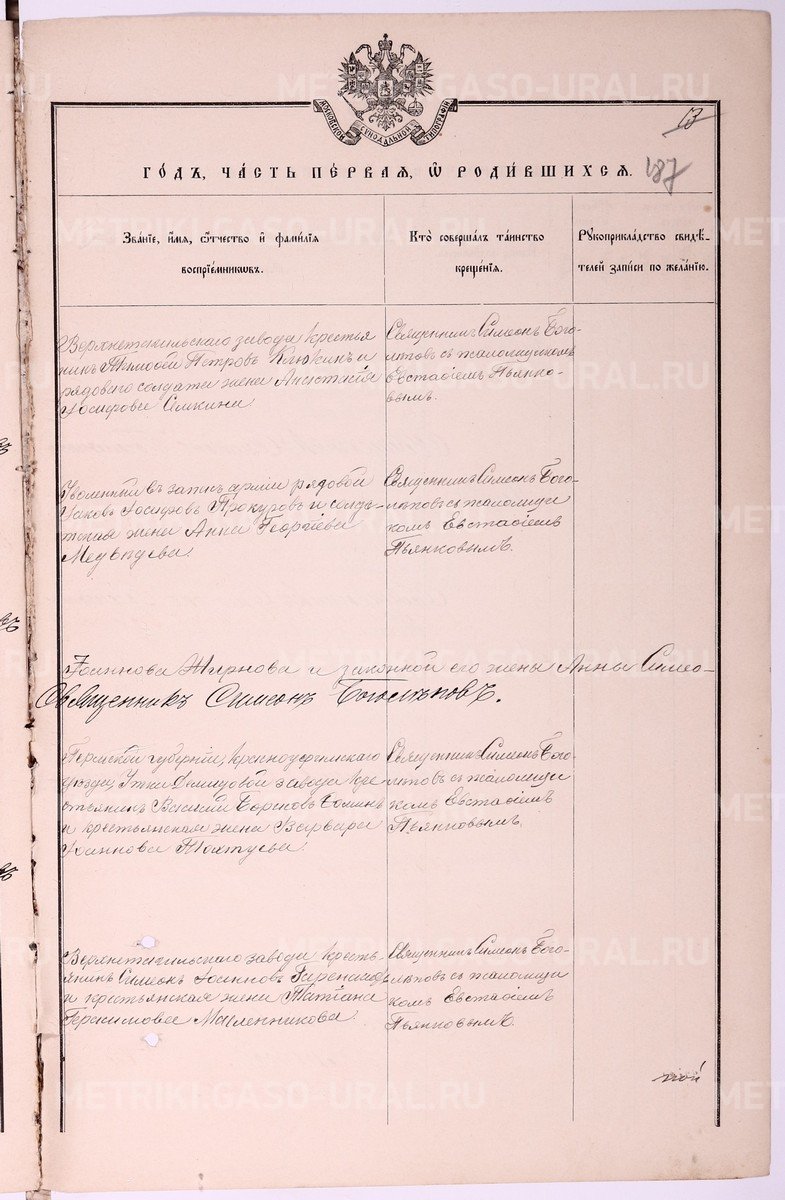 МОСКОВСКОЙ СѴНОДАЛЬНОЙ ТИПОГРАФІИ
13
ГОДЪ, ЧАСТЬ ПЕРВАЯ, Ѡ РОДИВШИХСЯ.
187
Званіе, имя, ѻтчество и фамилія
воспріемниковъ.
Кто совершалъ таинство
крещенія.
Рукоприкладство свидѣ-
телей записи по желанію.
Верхнетагильскаго завода крестья
нинъ Тимоѳей Петровъ Клюкинъ и
рядового солдата жена Анастасія
Іосифова Сёмкина
Священникъ Симеонъ Бого-
лѣповъ съ псаломщикомъ
Евстаѳіемъ Пьянко-
вымъ.
Уволенный въ запасъ арміи рядовой
Іаковъ Іосифовъ Прокуровъ и солда-
тская жена Анна Георгіева
Медвѣдева
Священникъ Симеонъ Бого-
лѣповъ съ псаломщи
комъ Евстаѳіемъ
Пьянковымъ.
Іоаннова Жирнова и законной его жены Анны Симео-
Священникъ Симеонъ Боголѣповъ.
Пермской губерніи, Красноуфимскаго
уѣзда, Утки Демидовой завода кре
стьянинъ Василій Борисовъ
и крестьянская жена Варвара
Іоаннова
Священникъ Симеонъ Бого-
лѣповъ съ псаломщи
комъ Евстаѳіемъ
Пьянковымъ.
Верхнетагильскаго завода кресть-
янинъ Симеонъ Іоанновъ
и крестьянская жена Татіана
Герасимова Масленникова
Священникъ Симеонъ Бого-
лѣповъ съ псаломщи
комъ Евстаѳіемъ
Пьянковымъ.
METRIKI.GASO-URAL.RU